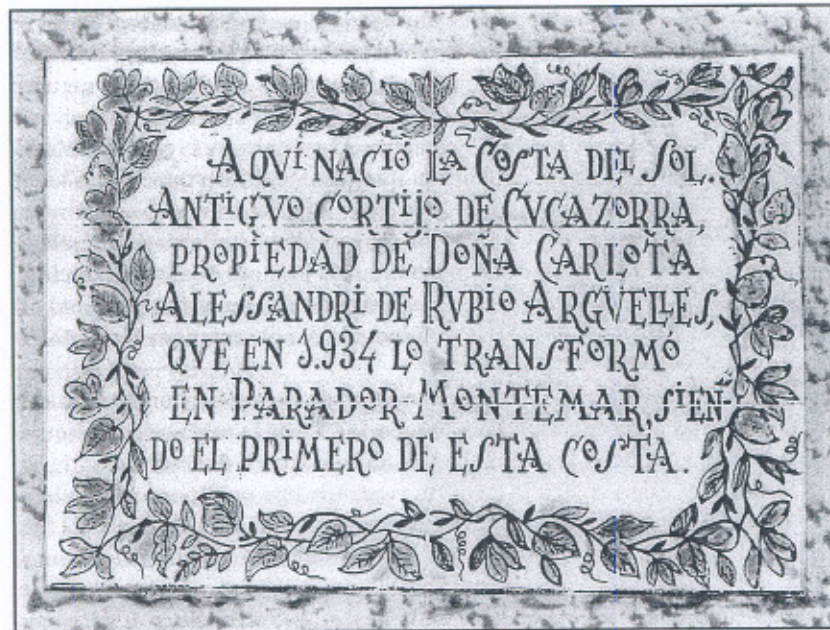 AQVÍ NACIÓ LA COSTA DEL SOL.
ANTIGVO CORTIJO DE CVCAZORRA,
PROPIEDAD DE DOÑA CARLOTA
ALESSANDRI DE RVBIO ARGÜELLES,
QVE EN 1.934 LO TRANSFORMÓ
EN PARADOR MONTEMAR, SIEN-
DO EL PRIMERO DE ESTA COSTA.